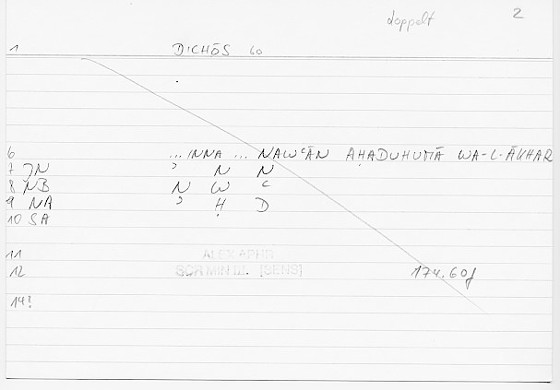 doppelt 2
1 DICHŌS 60
6 ...INNA ... NAWʿĀN AḤADUHUMĀ WA-L-ĀKHAR
7 JN ʾ N N
8 NB N W ʿ
9 NA ʾ Ḥ D
10 SA
11 ALEX APHR
12 [SENS] 174.60f
14!